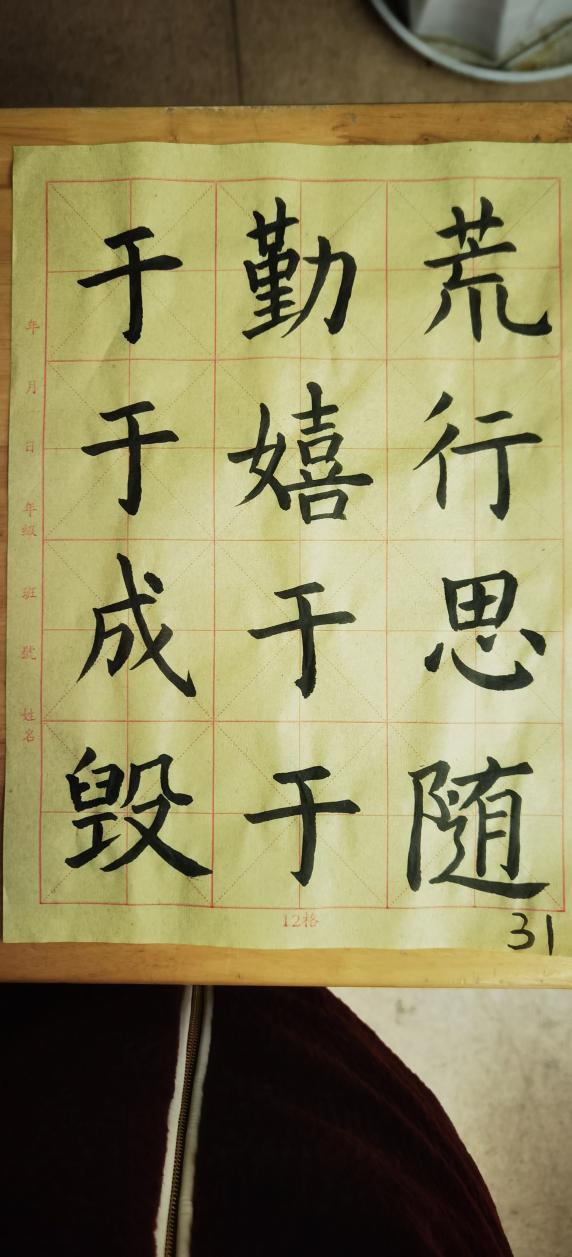 荒行思随
勤嬉于于
于于成毁
年 月 日 年级 班 號 姓名
12格
31